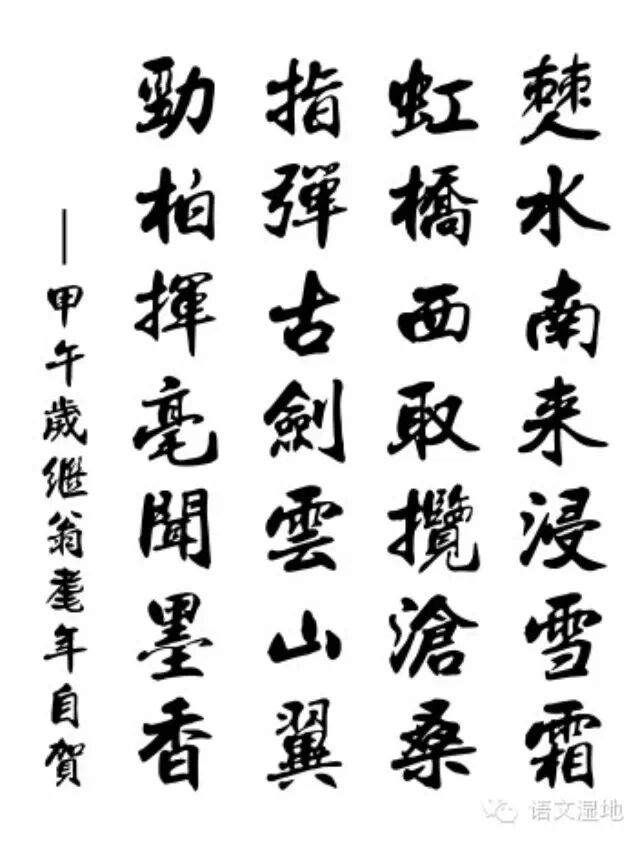 僰水南来浸雪霜
虹橋西取攬滄桑
指彈古劍雲山翼
勁柏揮毫聞墨香
——甲午歲繼翁耄年自賀
语文湿地